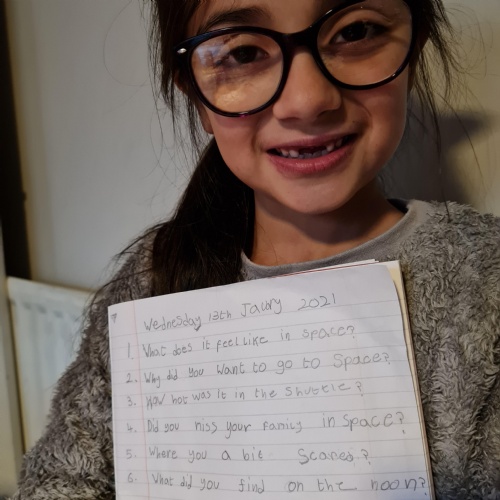 Wednesday 13th Jaury 2021
1. What does it feel like in space?
2. Why did you want to go to Space?
3. How hot was it in the shuttle?
4. Did you miss your family in space?
5. Where you a bit Scared?
6. What did you find on the moon?